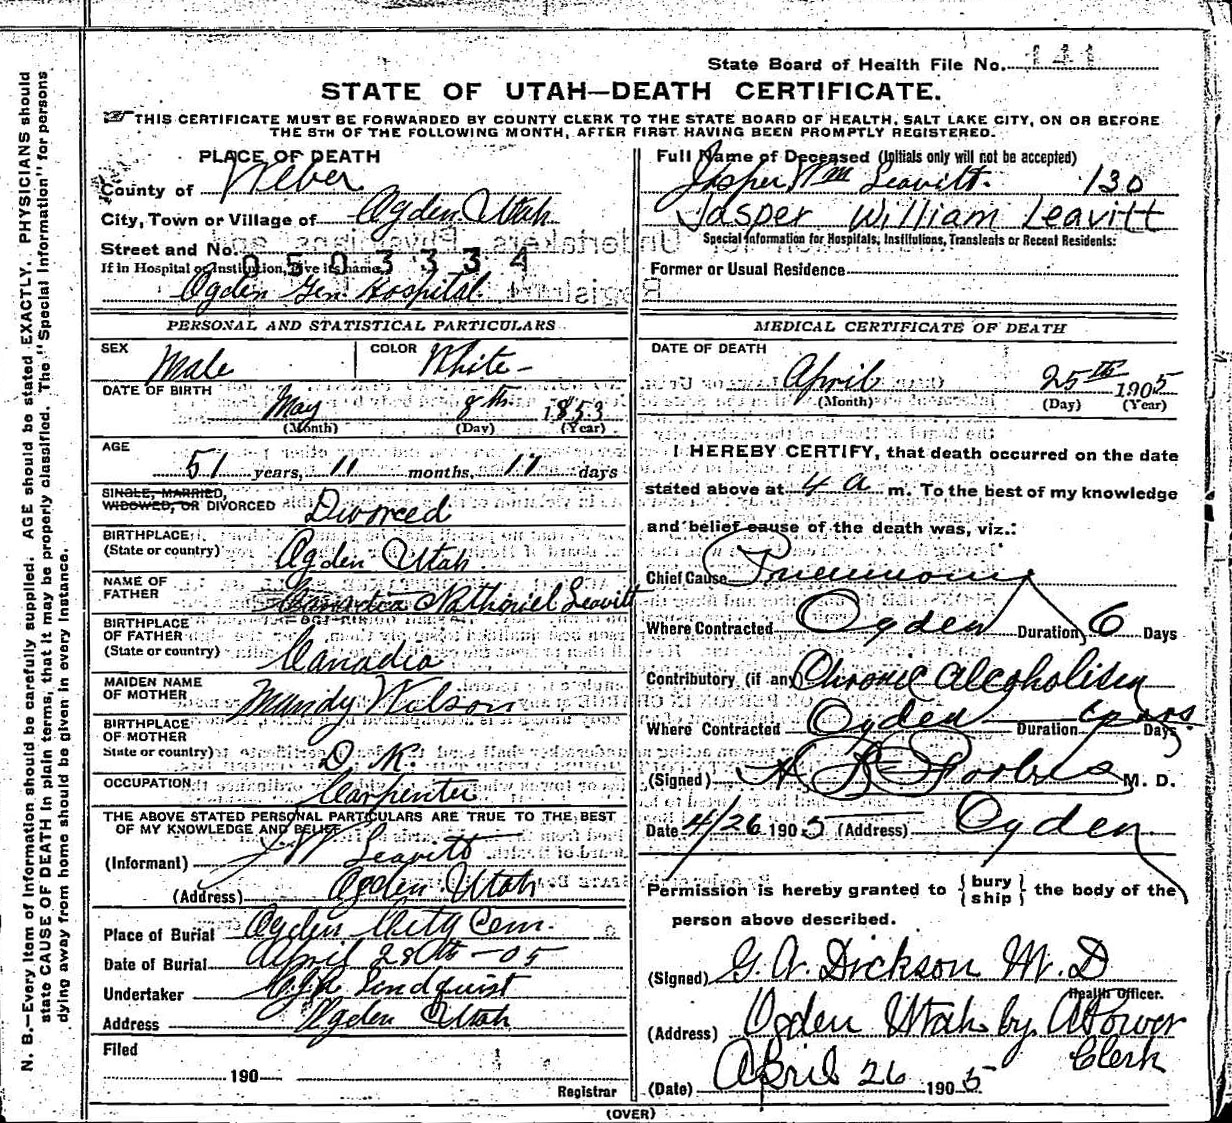 State Board of Health File No. 141
STATE OF UTAH—DEATH CERTIFICATE.
THIS CERTIFICATE MUST BE FORWARDED BY COUNTY CLERK TO THE STATE BOARD OF HEALTH, SALT LAKE CITY, ON OR BEFORE
THE 5TH OF THE FOLLOWING MONTH, AFTER FIRST HAVING BEEN PROMPTLY REGISTERED.
PLACE OF DEATH
County of Weber
City, Town or Village of Ogden Utah
Street and No.
0503334
If in Hospital or Institution, give its name,
Ogden Gen. Hospital
PERSONAL AND STATISTICAL PARTICULARS
SEX Male COLOR White
DATE OF BIRTH May 8th 1853
(Month) (Day) (Year)
AGE 51 years, 11 months, 17 days
SINGLE, MARRIED,
WIDOWED, OR DIVORCED Divorced
BIRTHPLACE
(State or country) Ogden Utah
NAME OF
FATHER Nathaniel Leavitt
BIRTHPLACE
OF FATHER
(State or country) Canadia
MAIDEN NAME
OF MOTHER Mundy Wilson
BIRTHPLACE
OF MOTHER
State or country) D. K.
OCCUPATION Carpenter
THE ABOVE STATED PERSONAL PARTICULARS ARE TRUE TO THE BEST
OF MY KNOWLEDGE AND BELIEF
(Informant) J W Leavitt
(Address) Ogden Utah
Place of Burial Ogden City Cem.
Date of Burial April 28th-05
Undertaker Lindquist
Address Ogden Utah
Filed
190
Registrar
Full Name of Deceased (Initials only will not be accepted)
Jasper Wm Leavitt. 130
Jasper William Leavitt
Special Information for Hospitals, Institutions, Transients or Recent Residents:
Former or Usual Residence
MEDICAL CERTIFICATE OF DEATH
DATE OF DEATH
April 25th 1905
(Month) (Day) (Year)
I HEREBY CERTIFY, that death occurred on the date
stated above at 4 a m. To the best of my knowledge
and belief cause of the death was, viz.:
Chief Cause Pneumonia
Where Contracted Ogden Duration 6 Days
Contributory (if any) Chronic Alcoholism
Where Contracted Ogden Duration Days
(Signed) M. D.
Date 4/26 1905 (Address) Ogden
Permission is hereby granted to { bury ship } the body of the
person above described.
(Signed) G. A. Dickson M. D
Health Officer.
(Address) Ogden Utah by A Power
Clerk
(Date) April 26 1905
(OVER)
N. B.—Every item of information should be carefully supplied. AGE should be stated EXACTLY. PHYSICIANS should
state CAUSE OF DEATH in plain terms, that it may be properly classified. The "Special Information" for persons
dying away from home should be given in every instance.